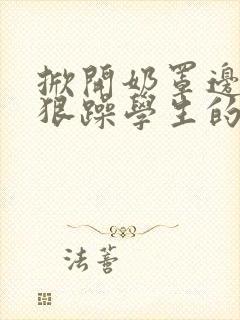 掀開奶罩邊
狠躁學生的
法蕾